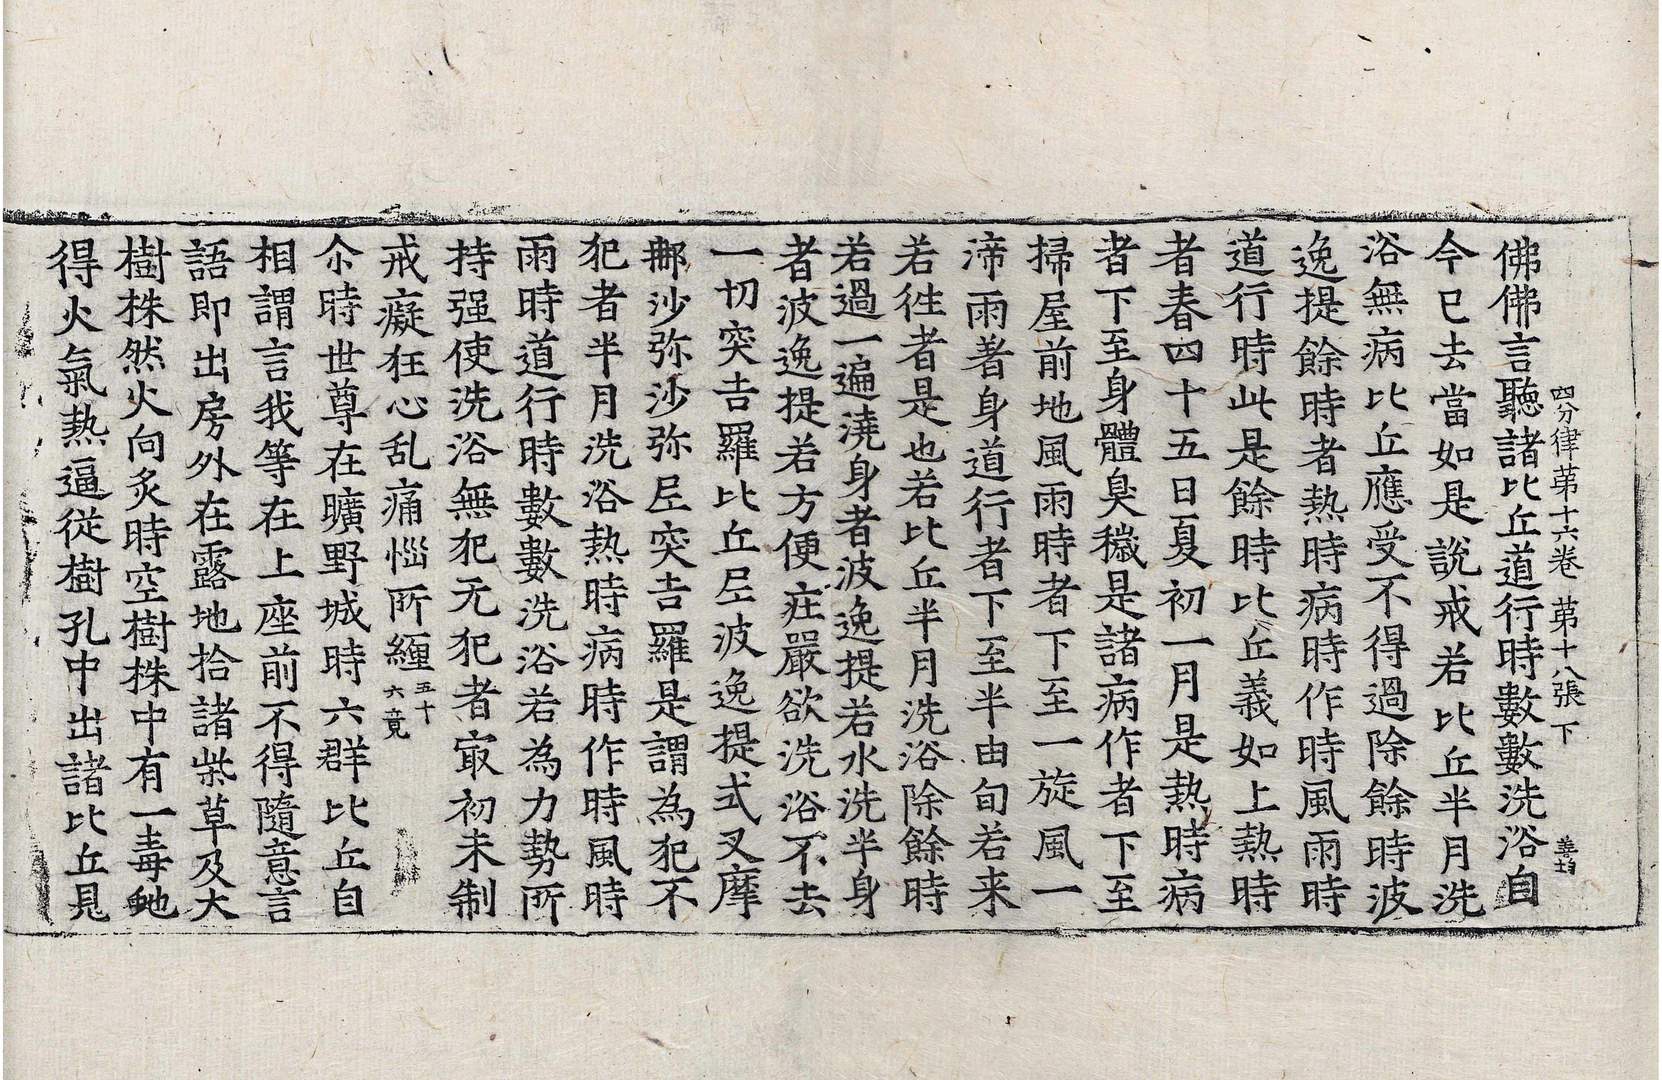 四分律苐十六卷 苐十八張 下
佛佛言聽諸比丘道行時數數洗浴自
今已去當如是說戒若比丘半月洗
浴無病比丘應受不得過除餘時波
逸提餘時者熱時病時作時風雨時
道行時此是餘時比丘義如上熱時
者春四十五日夏初一月是熱時病
者下至身體臭穢是諸病作者下至
掃屋前地風雨時者下至一旋風一
渧雨著身道行者下至半由旬若来
若徃者是也若比丘半月洗浴除餘時
若過一遍澆身者波逸提若水洗半身
者波逸提若方便莊嚴欲洗浴不去
一切突吉羅比丘尼波逸提式叉摩
那沙弥沙弥尼突吉羅是謂為犯不
犯者半月洗浴熱時病時作時風時
雨時道行時數數洗浴若為力勢所
持强使洗浴無犯无犯者㝡初未制
戒癡狂心乱痛惱所纏五十六竟
尒時世尊在曠野城時六群比丘自
相謂言我等在上座前不得隨意言
語即出房外在露地拾諸柴草及大
樹株然火向炙時空樹株中有一毒虵
得火氣熱逼從樹孔中出諸比丘見